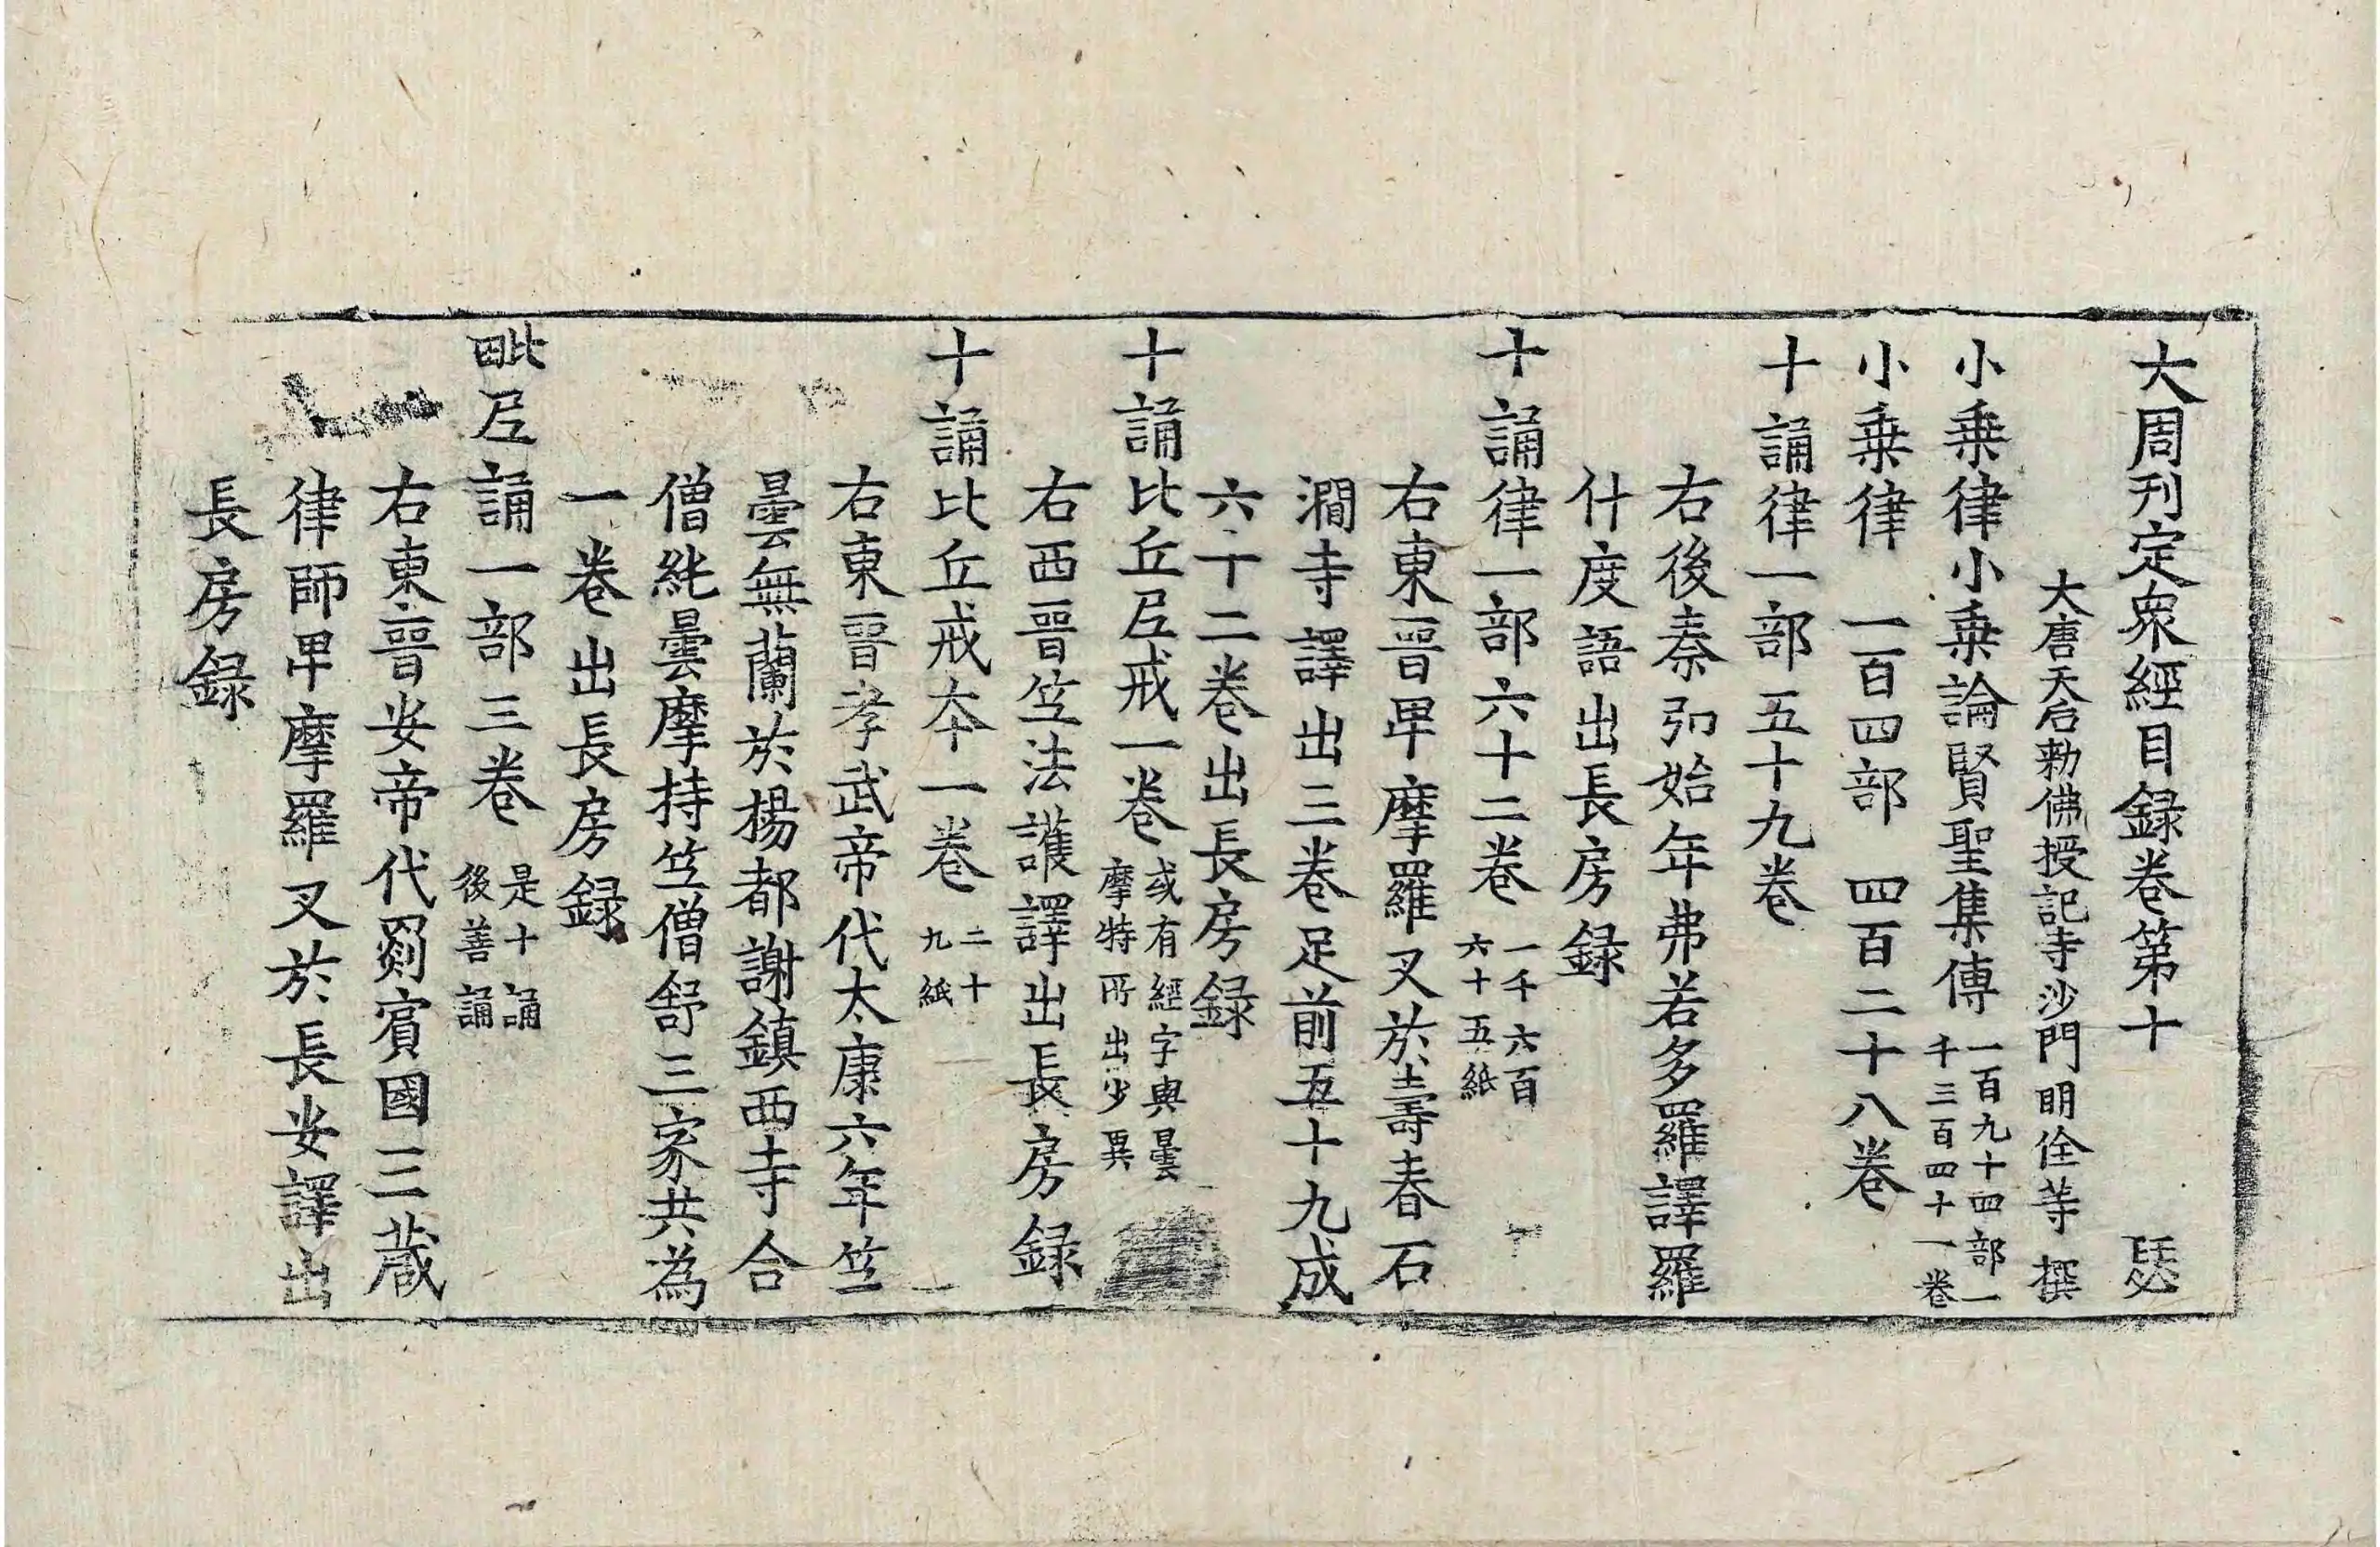 大周刊定衆經目録卷第十 瑟
大唐天后勅佛授記寺沙門明佺等 撰
小乗律小乗論賢聖集傳 一百九十四部一千三百四十一卷
小乗律 一百四部 四百二十八卷
十誦律一部五十九卷
右後秦弘始年弗若多羅譯羅
什度語出長房録
十誦律一部六十二卷 一千六百六十五紙
右東晋卑摩羅叉於壽春石
澗寺譯出三卷足前五十九成
六十二卷出長房録
十誦比丘尼戒一卷 或有經字與曇摩特所出少異
右西晋竺法護譯出長房録
十誦比丘戒本一卷 二十九紙
右東晋孝武帝代太康六年竺
曇無蘭於楊都謝鎮西寺合
僧純曇摩持竺僧舒三家共為
一卷出長房録
毗尼誦一部三卷 是十誦後善誦
右東晋安帝代罽賓國三蔵
律師卑摩羅叉於長安譯出
長房録